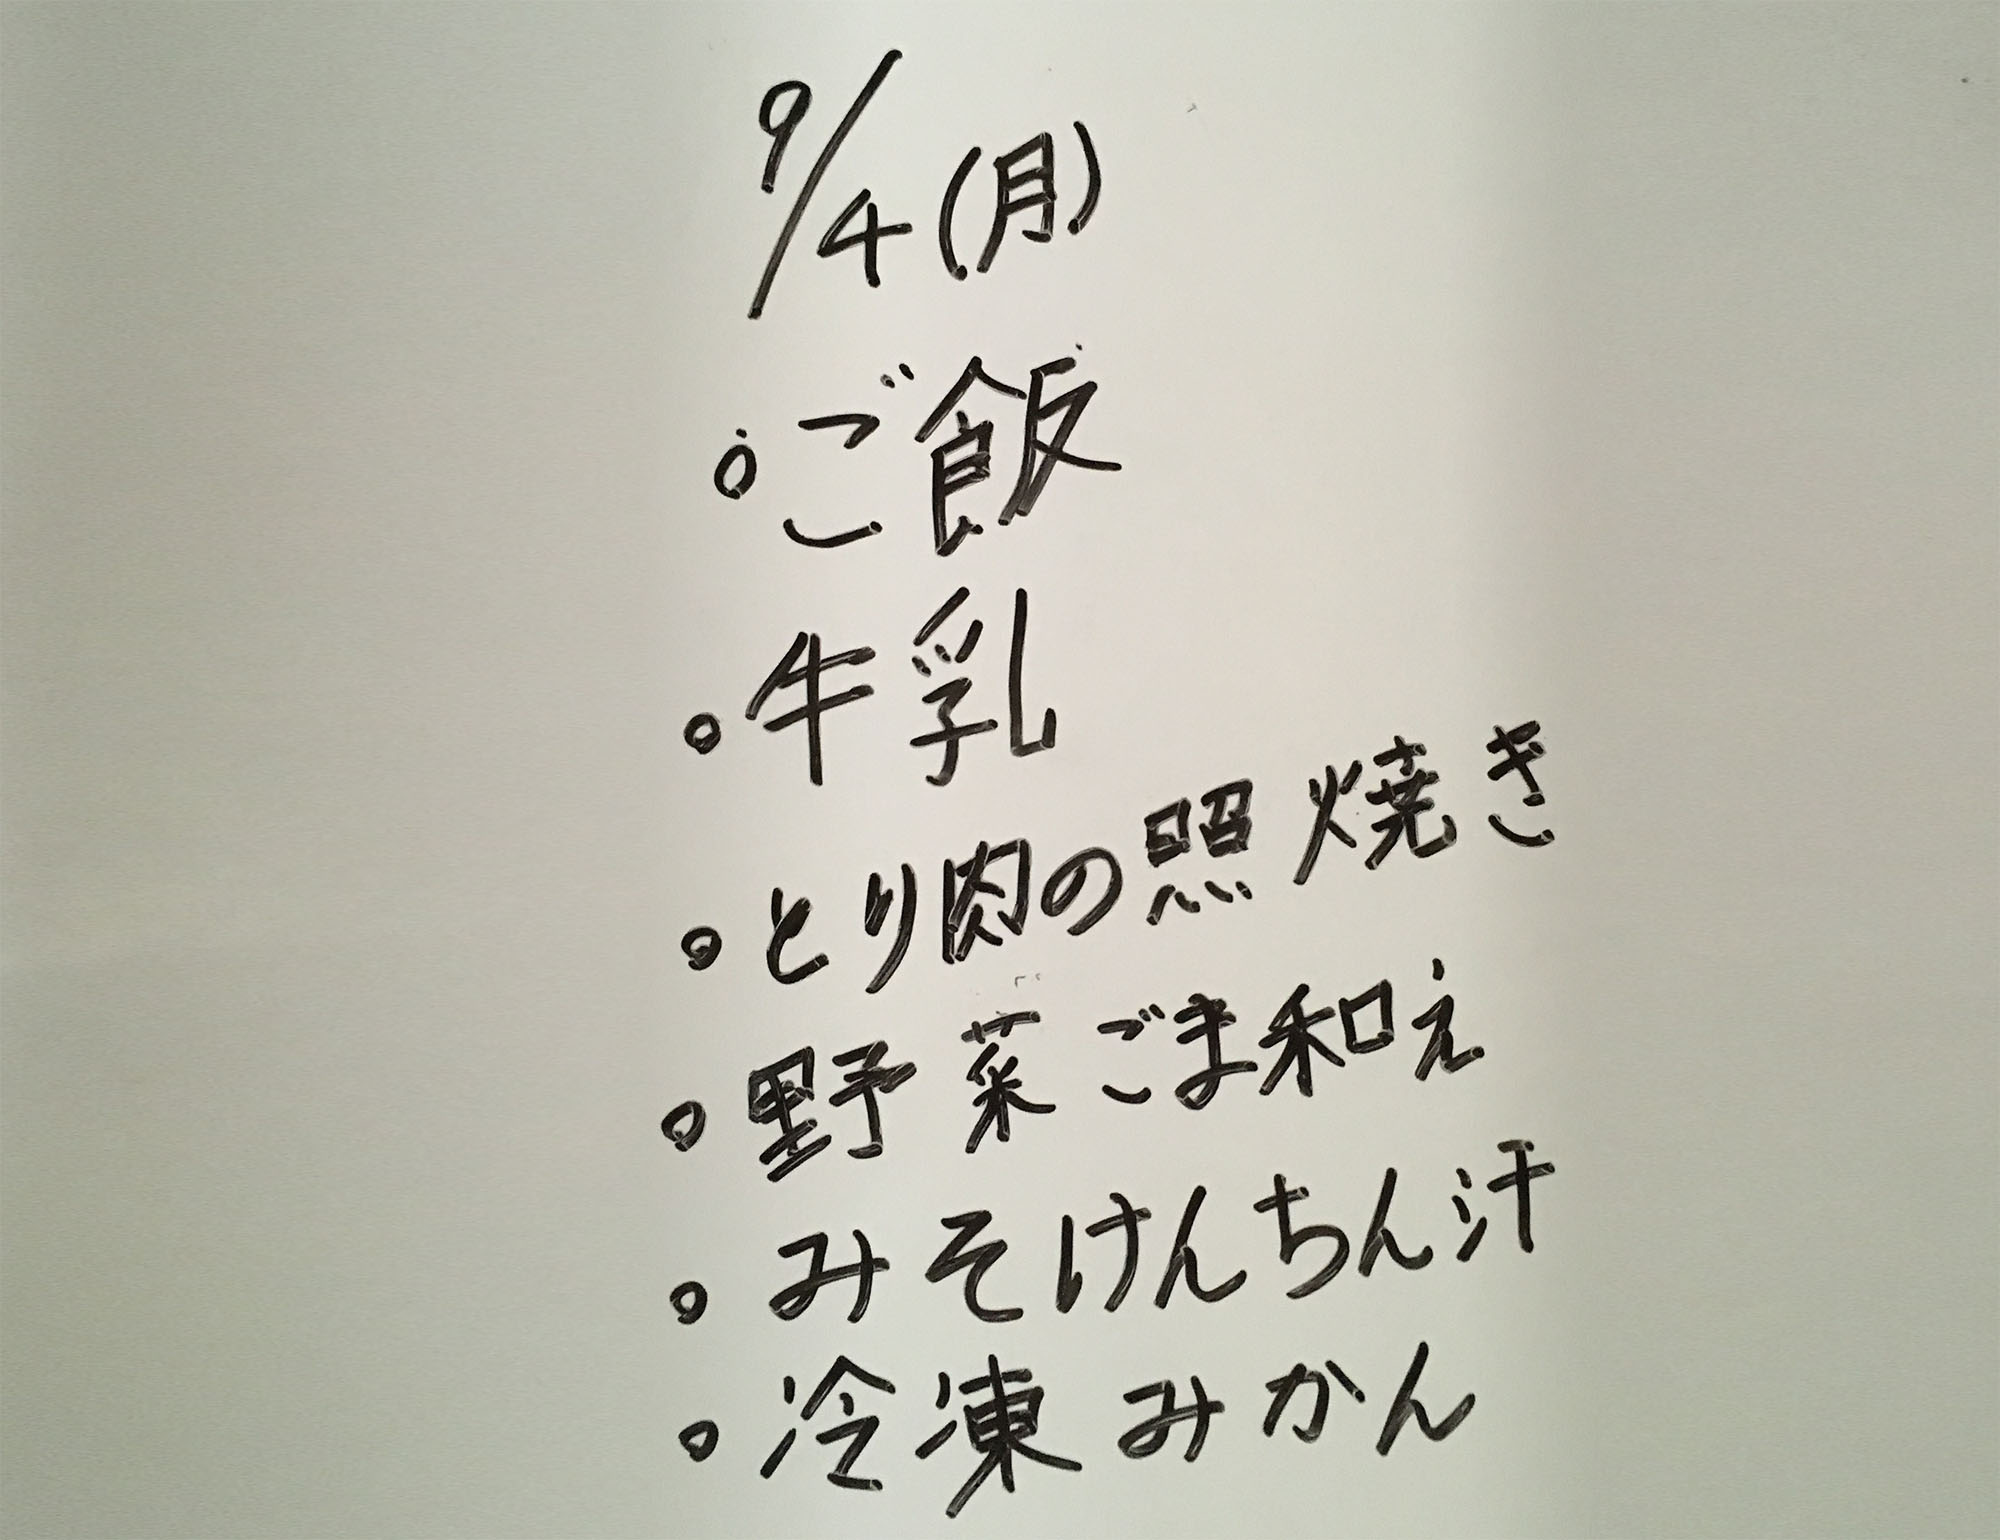 9/4(月)
・ご飯
・牛乳
・とり肉の照焼き
・野菜ごま和え
・みそけんちん汁
・冷凍みかん